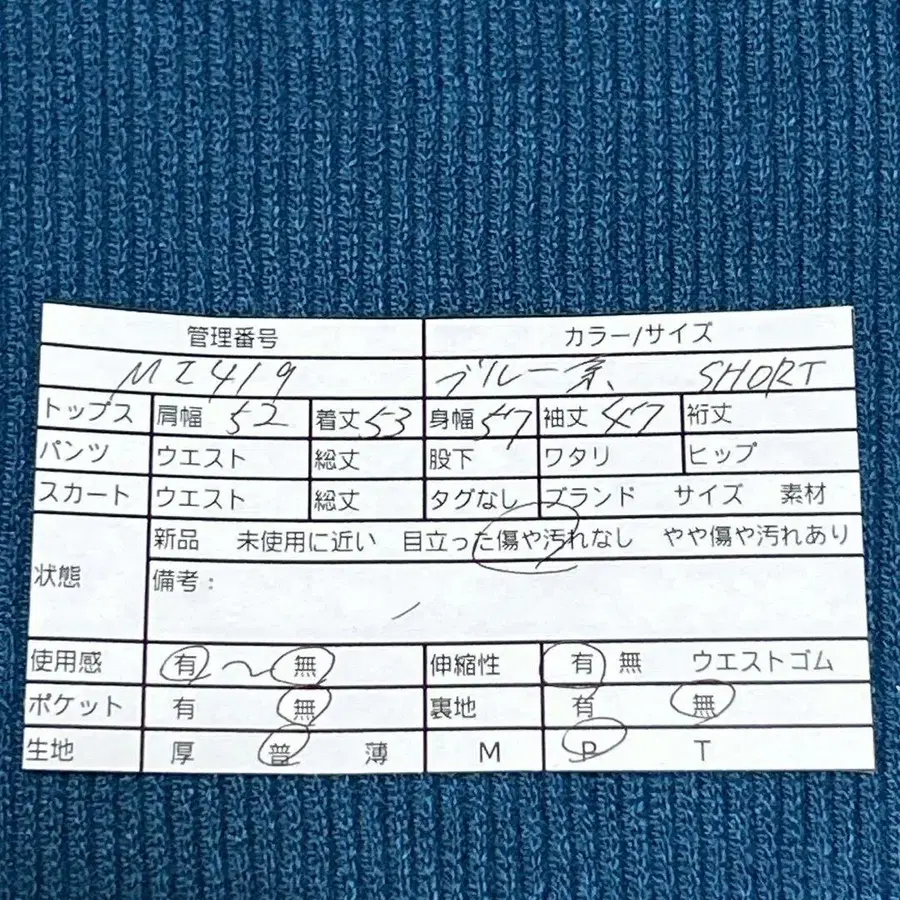 管理番号 カラー/サイズ
MZ419 ブルー系 SHORT
トップス 肩幅 52 着丈 53 身幅 57 袖丈 47 裄丈
パンツ ウエスト 総丈 股下 ワタリ ヒップ
スカート ウエスト 総丈 タグなし ブランド サイズ 素材
状態 新品 未使用に近い 目立った傷や汚れなし やや傷や汚れあり
備考:
使用感 有 〜 無 伸縮性 有 無 ウエストゴム
ポケット 有 無 裏地 有 無
生地 厚 普 薄 M P T